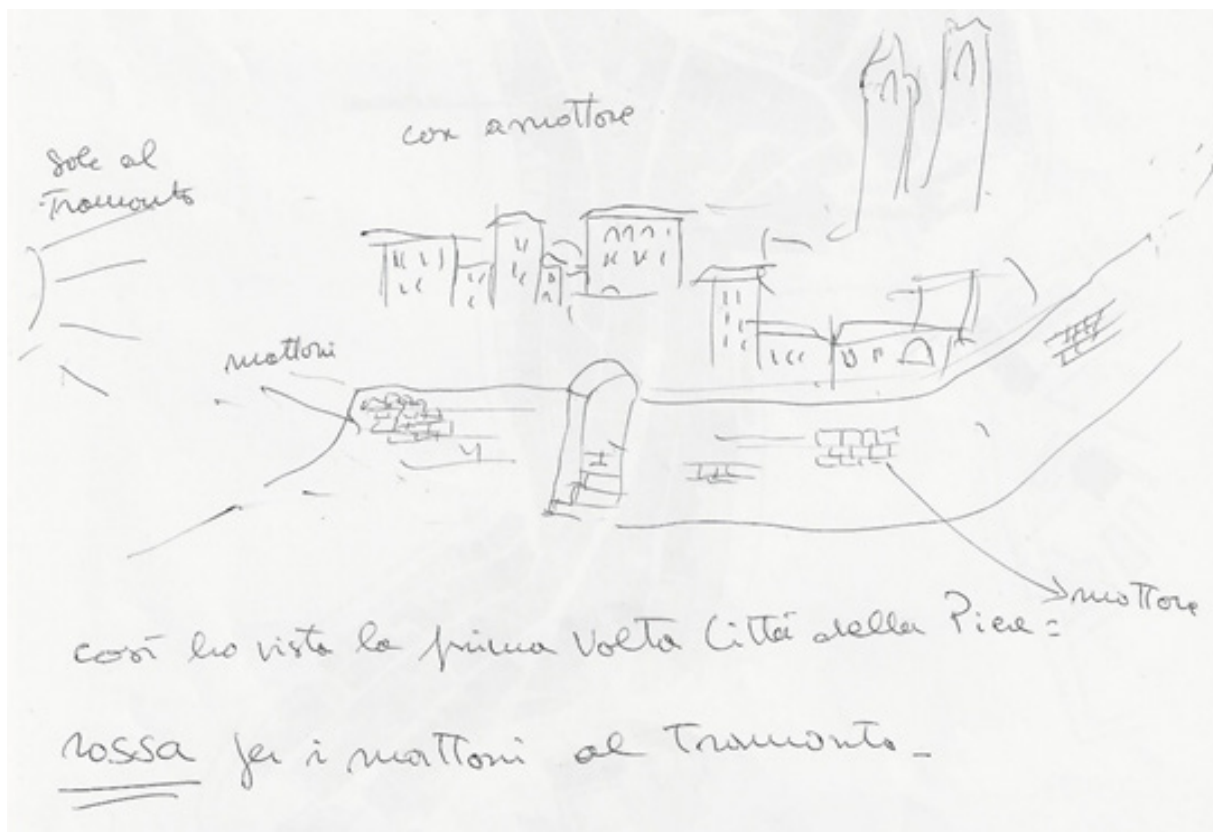 Sole al
Tramonto
case a mattone
mattoni
mattone
così ho visto la prima volta Città della Pieve =
rossa per i mattoni al Tramonto -